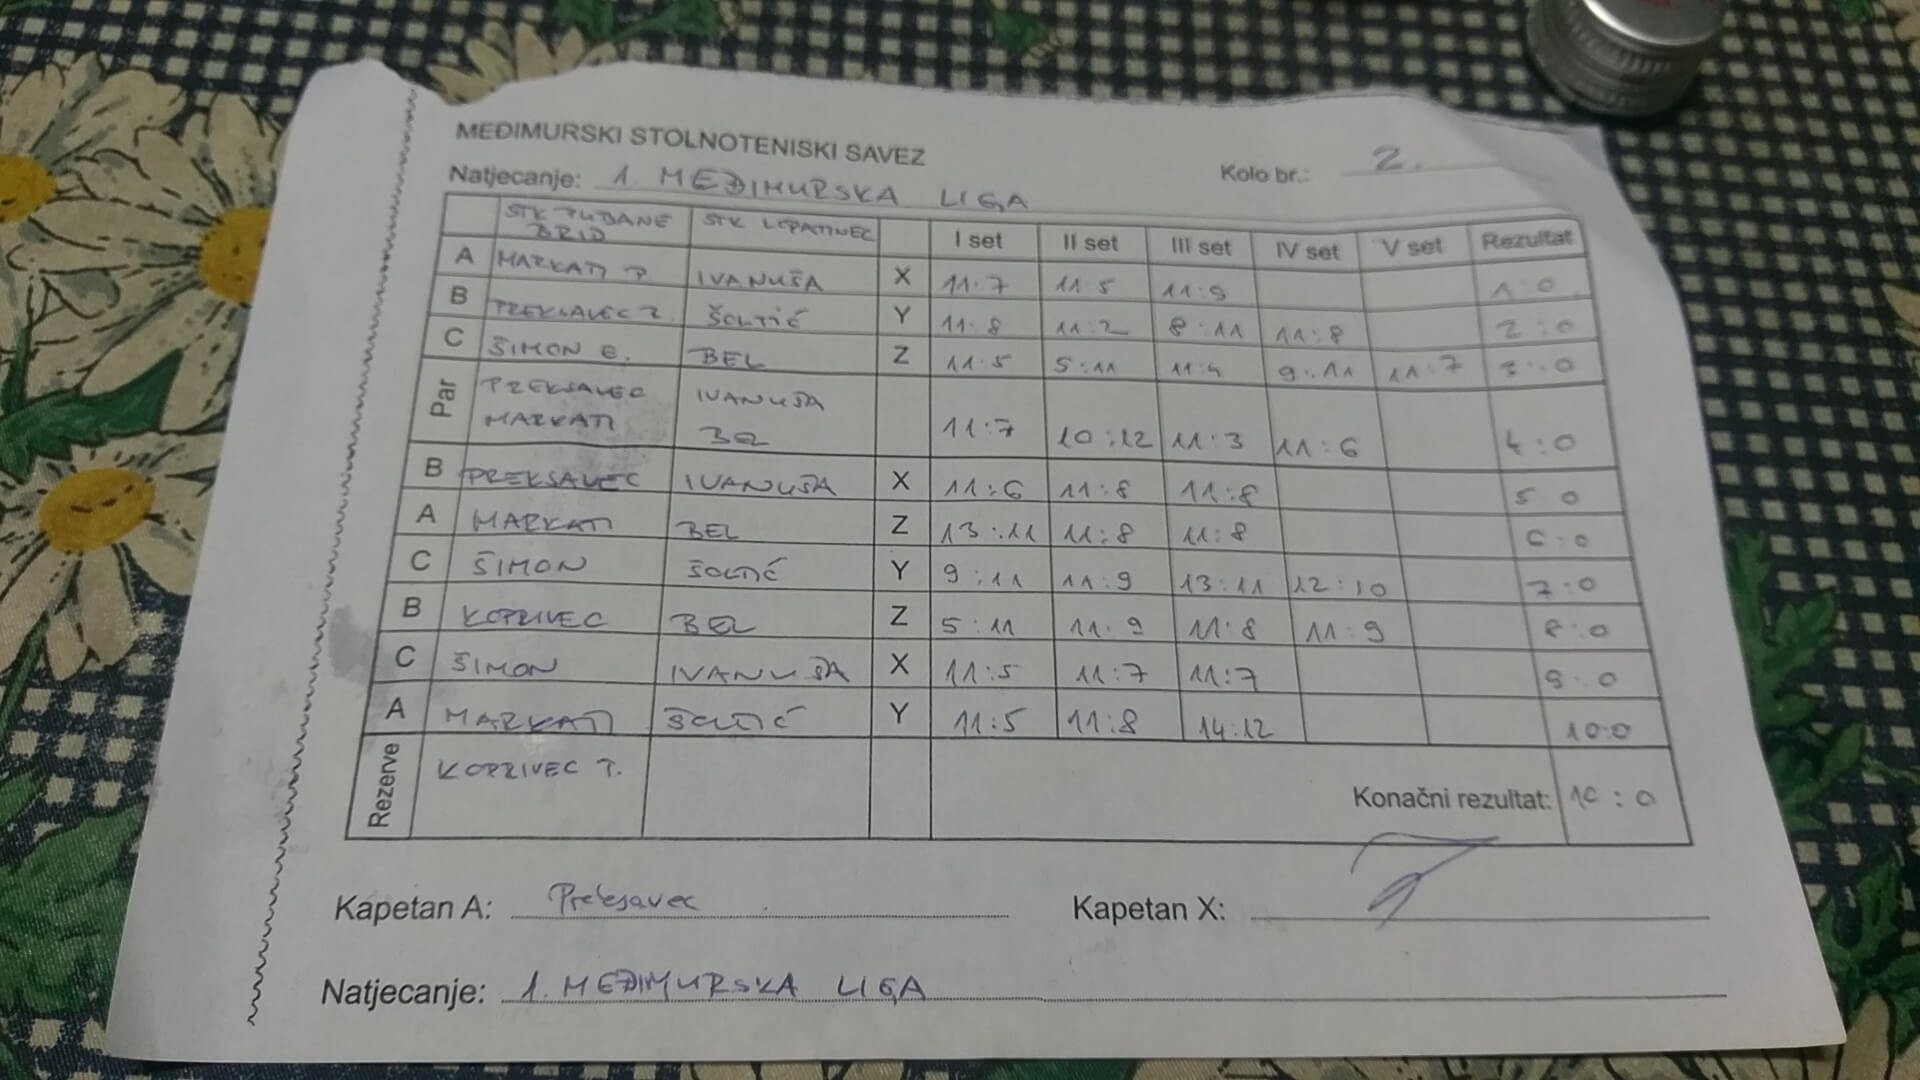 MEĐIMURSKI STOLNOTENISKI SAVEZ
Natjecanje: 1. MEĐIMURSKA LIGA Kolo br.: 2.
STK PUBANE BRID STK LOPATINEC I set II set III set IV set V set Rezultat
A MARKATI P. IVANUŠA X 11:7 11:5 11:9 1:0
B PREKSAVEC Z. ŠOLTIĆ Y 11:8 11:2 8:11 11:8 2:0
C ŠIMON E. BEL Z 11:5 5:11 11:4 9:11 11:7 3:0
Par PREKSAVEC IVANUŠA
MARKATI BEL 11:7 10:12 11:3 11:6 4:0
B PREKSAVEC IVANUŠA X 11:6 11:8 11:8 5 0
A MARKATI BEL Z 13:11 11:8 11:8 6:0
C ŠIMON ŠOLTIĆ Y 9:11 11:9 13:11 12:10 7:0
B KOPRIVEC BEL Z 5:11 11:9 11:8 11:9 8:0
C ŠIMON IVANUŠA X 11:5 11:7 11:7 9:0
A MARKATI ŠOLTIĆ Y 11:5 11:8 14:12 10:0
Rezerve KOPRIVEC T.
Konačni rezultat: 10:0
Kapetan A: Preksavec Kapetan X:
Natjecanje: 1. MEĐIMURSKA LIGA